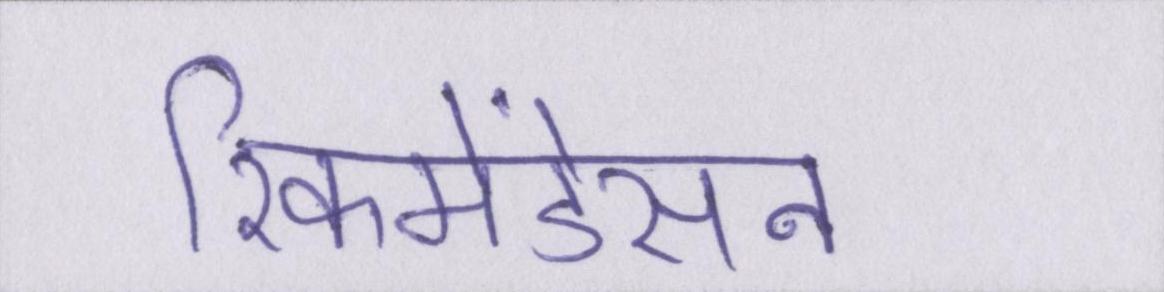 रिकमेंडेसन